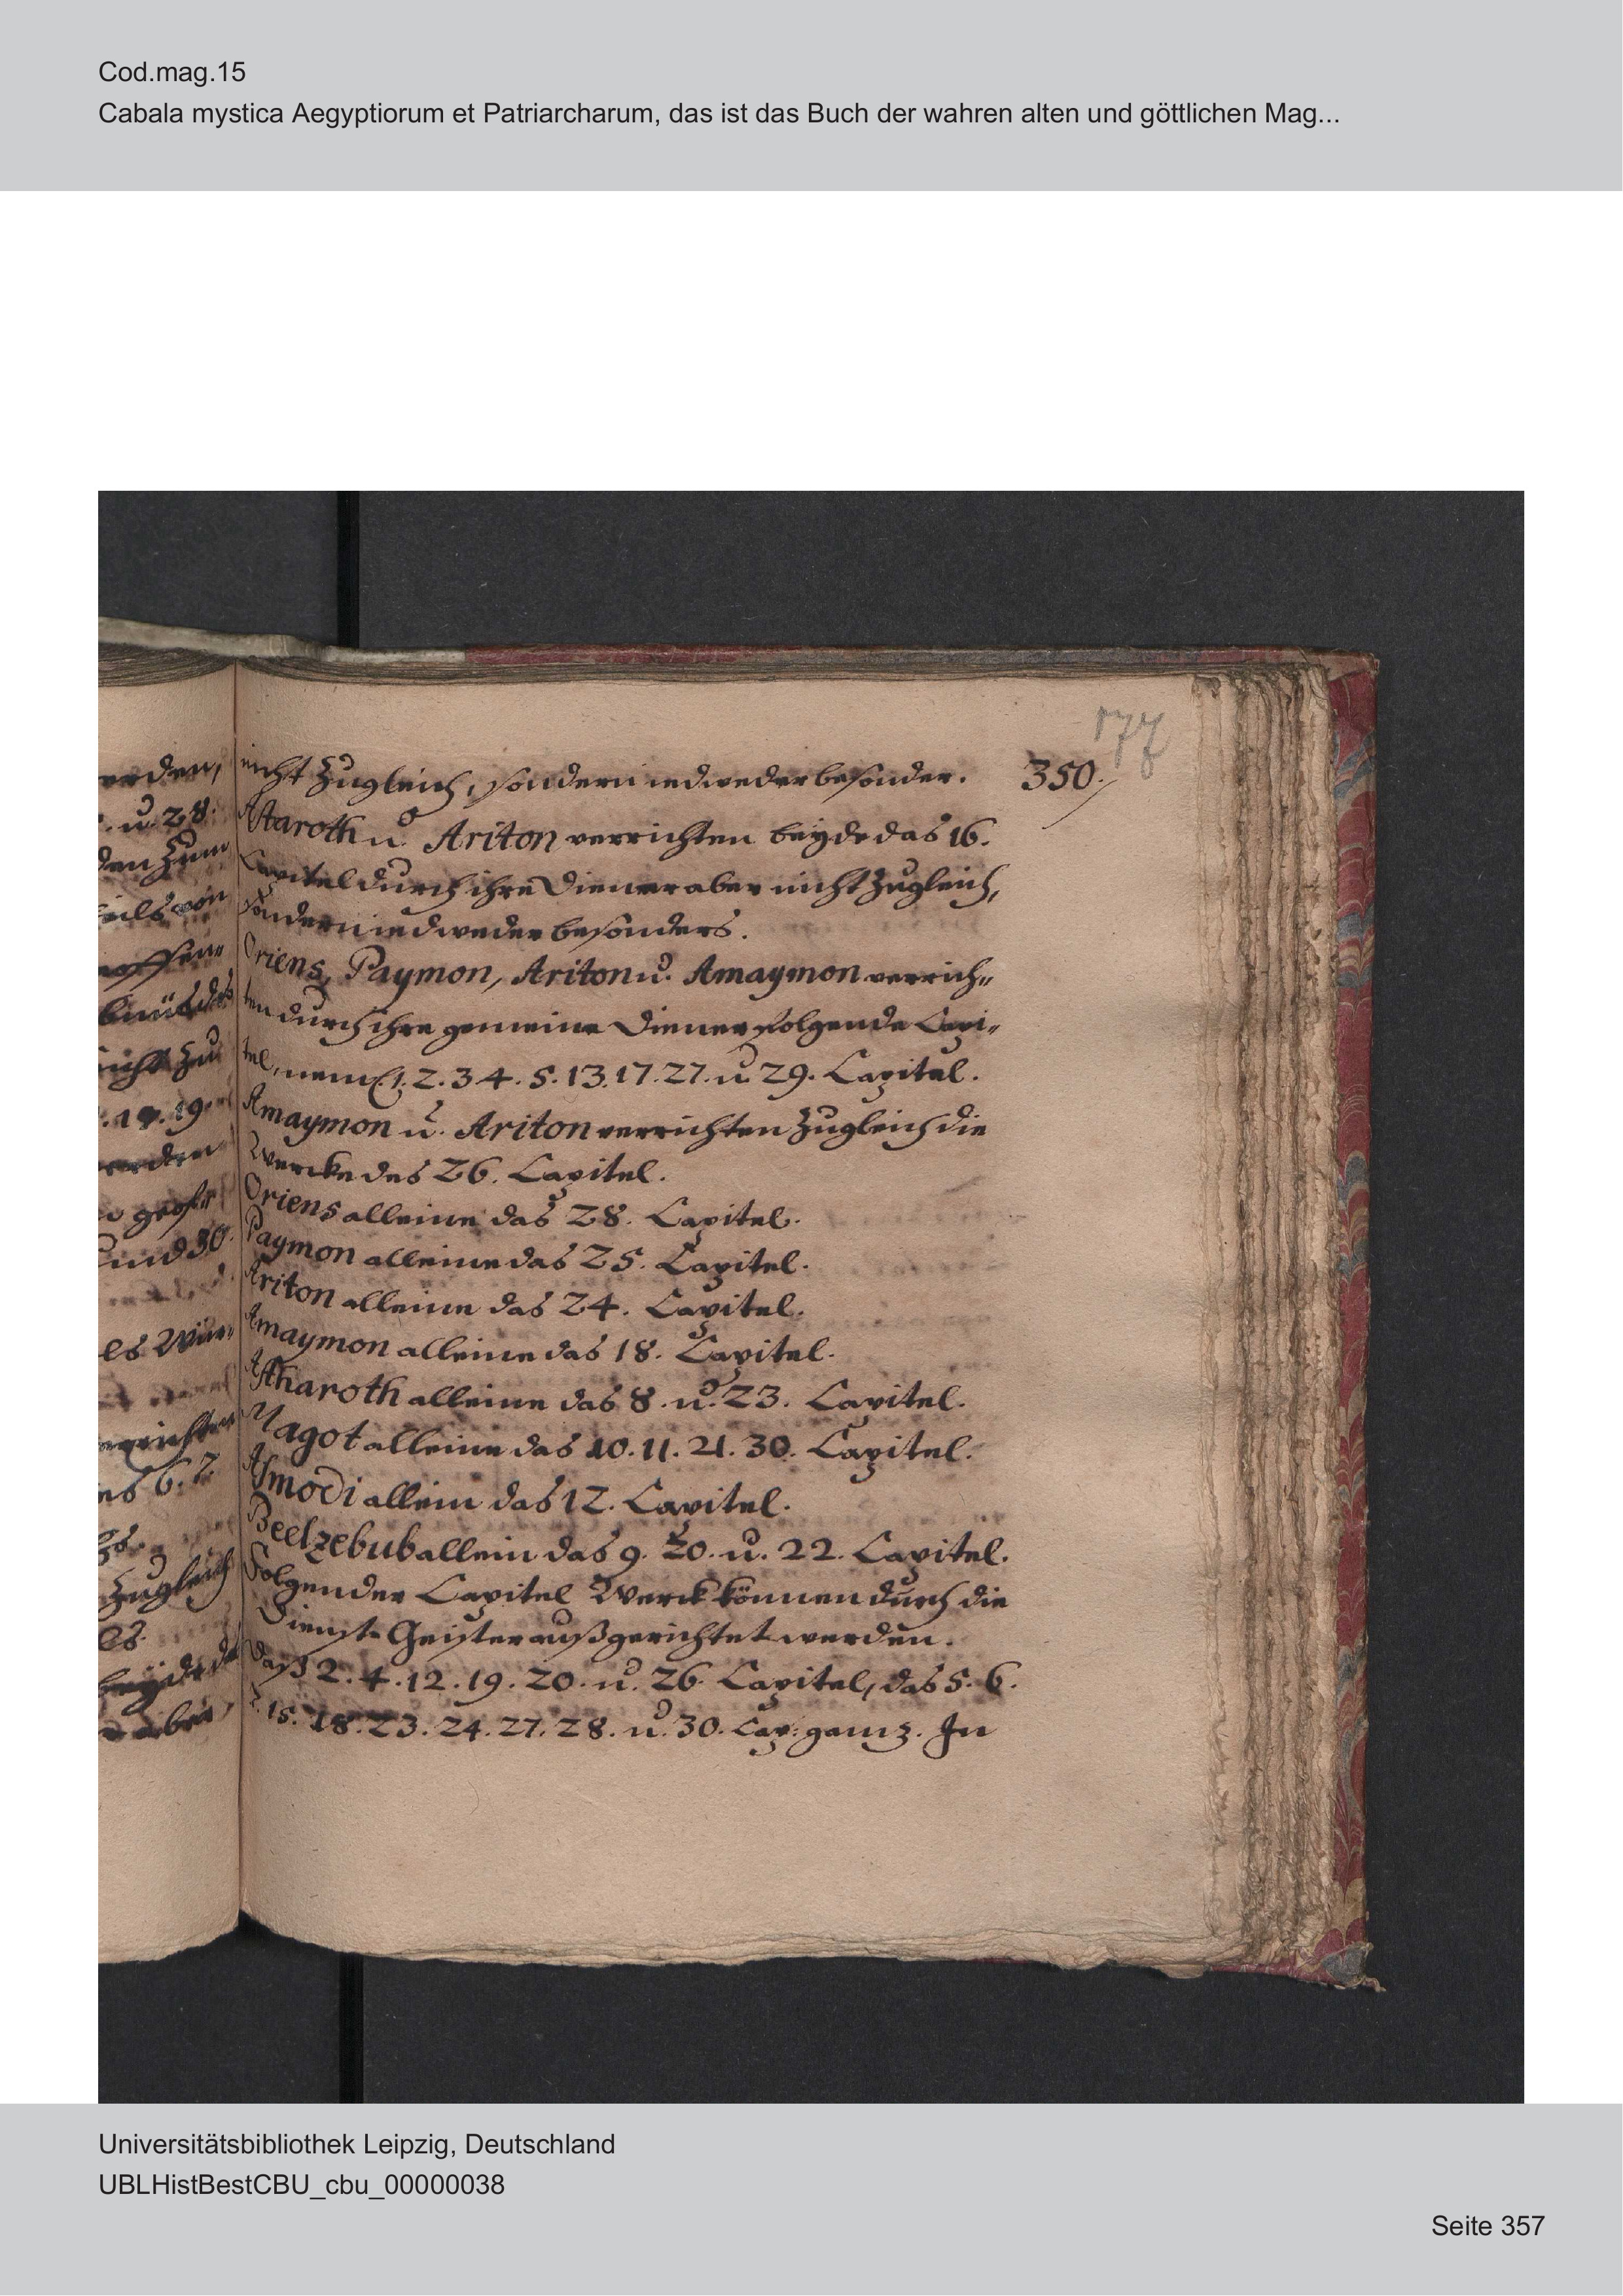 Cod.mag.15
Cabala mystica Aegyptiorum et Patriarcharum, das ist das Buch der wahren alten und göttlichen Mag...
177
350.
nicht zugleich, sondern iedweder besonder.
Astaroth u. Ariton verrichten beyde das 16.
Capitel durch ihre Diener aber nicht zugleich,
sondern iedweder besonders.
Oriens, Paymon, Ariton u. Amaymon verrich„
ten durch ihre gemeine Diener folgende Capi„
tel, neml. 1. 2. 3 4. 5. 13. 17. 27. u. 29. Capitel.
Amaymon u. Ariton verrichten zugleich die
Wercke des 26. Capitel.
Oriens alleine das 28. Capitel.
Paymon alleine das 25. Capitel.
Ariton alleine das 24. Capitel.
Amaymon alleine das 18. Capitel.
Astharoth alleine das 8. u. 23. Capitel.
Magot alleine das 10. 11. 21. 30. Capitel.
Asmodi allein das 12. Capitel.
Beelzebub allein das 9. 20. u. 22. Capitel.
Folgender Capitel Werck können durch die
Dienst-Geister außgerichtet werden.
Daß 2. 4. 12. 19. 20. u. 26 Capitel, das 5. 6.
7. 15. 18. 23. 24. 27. 28. u. 30. Cap: ganz. In
erden,
u. 28.
den zum
nicht zu
19.
werden
und 30.
es Wür„
6. 7.
zugleich
es.
beyde da
aber
Universitätsbibliothek Leipzig, Deutschland
UBLHistBestCBU_cbu_00000038
Seite 357